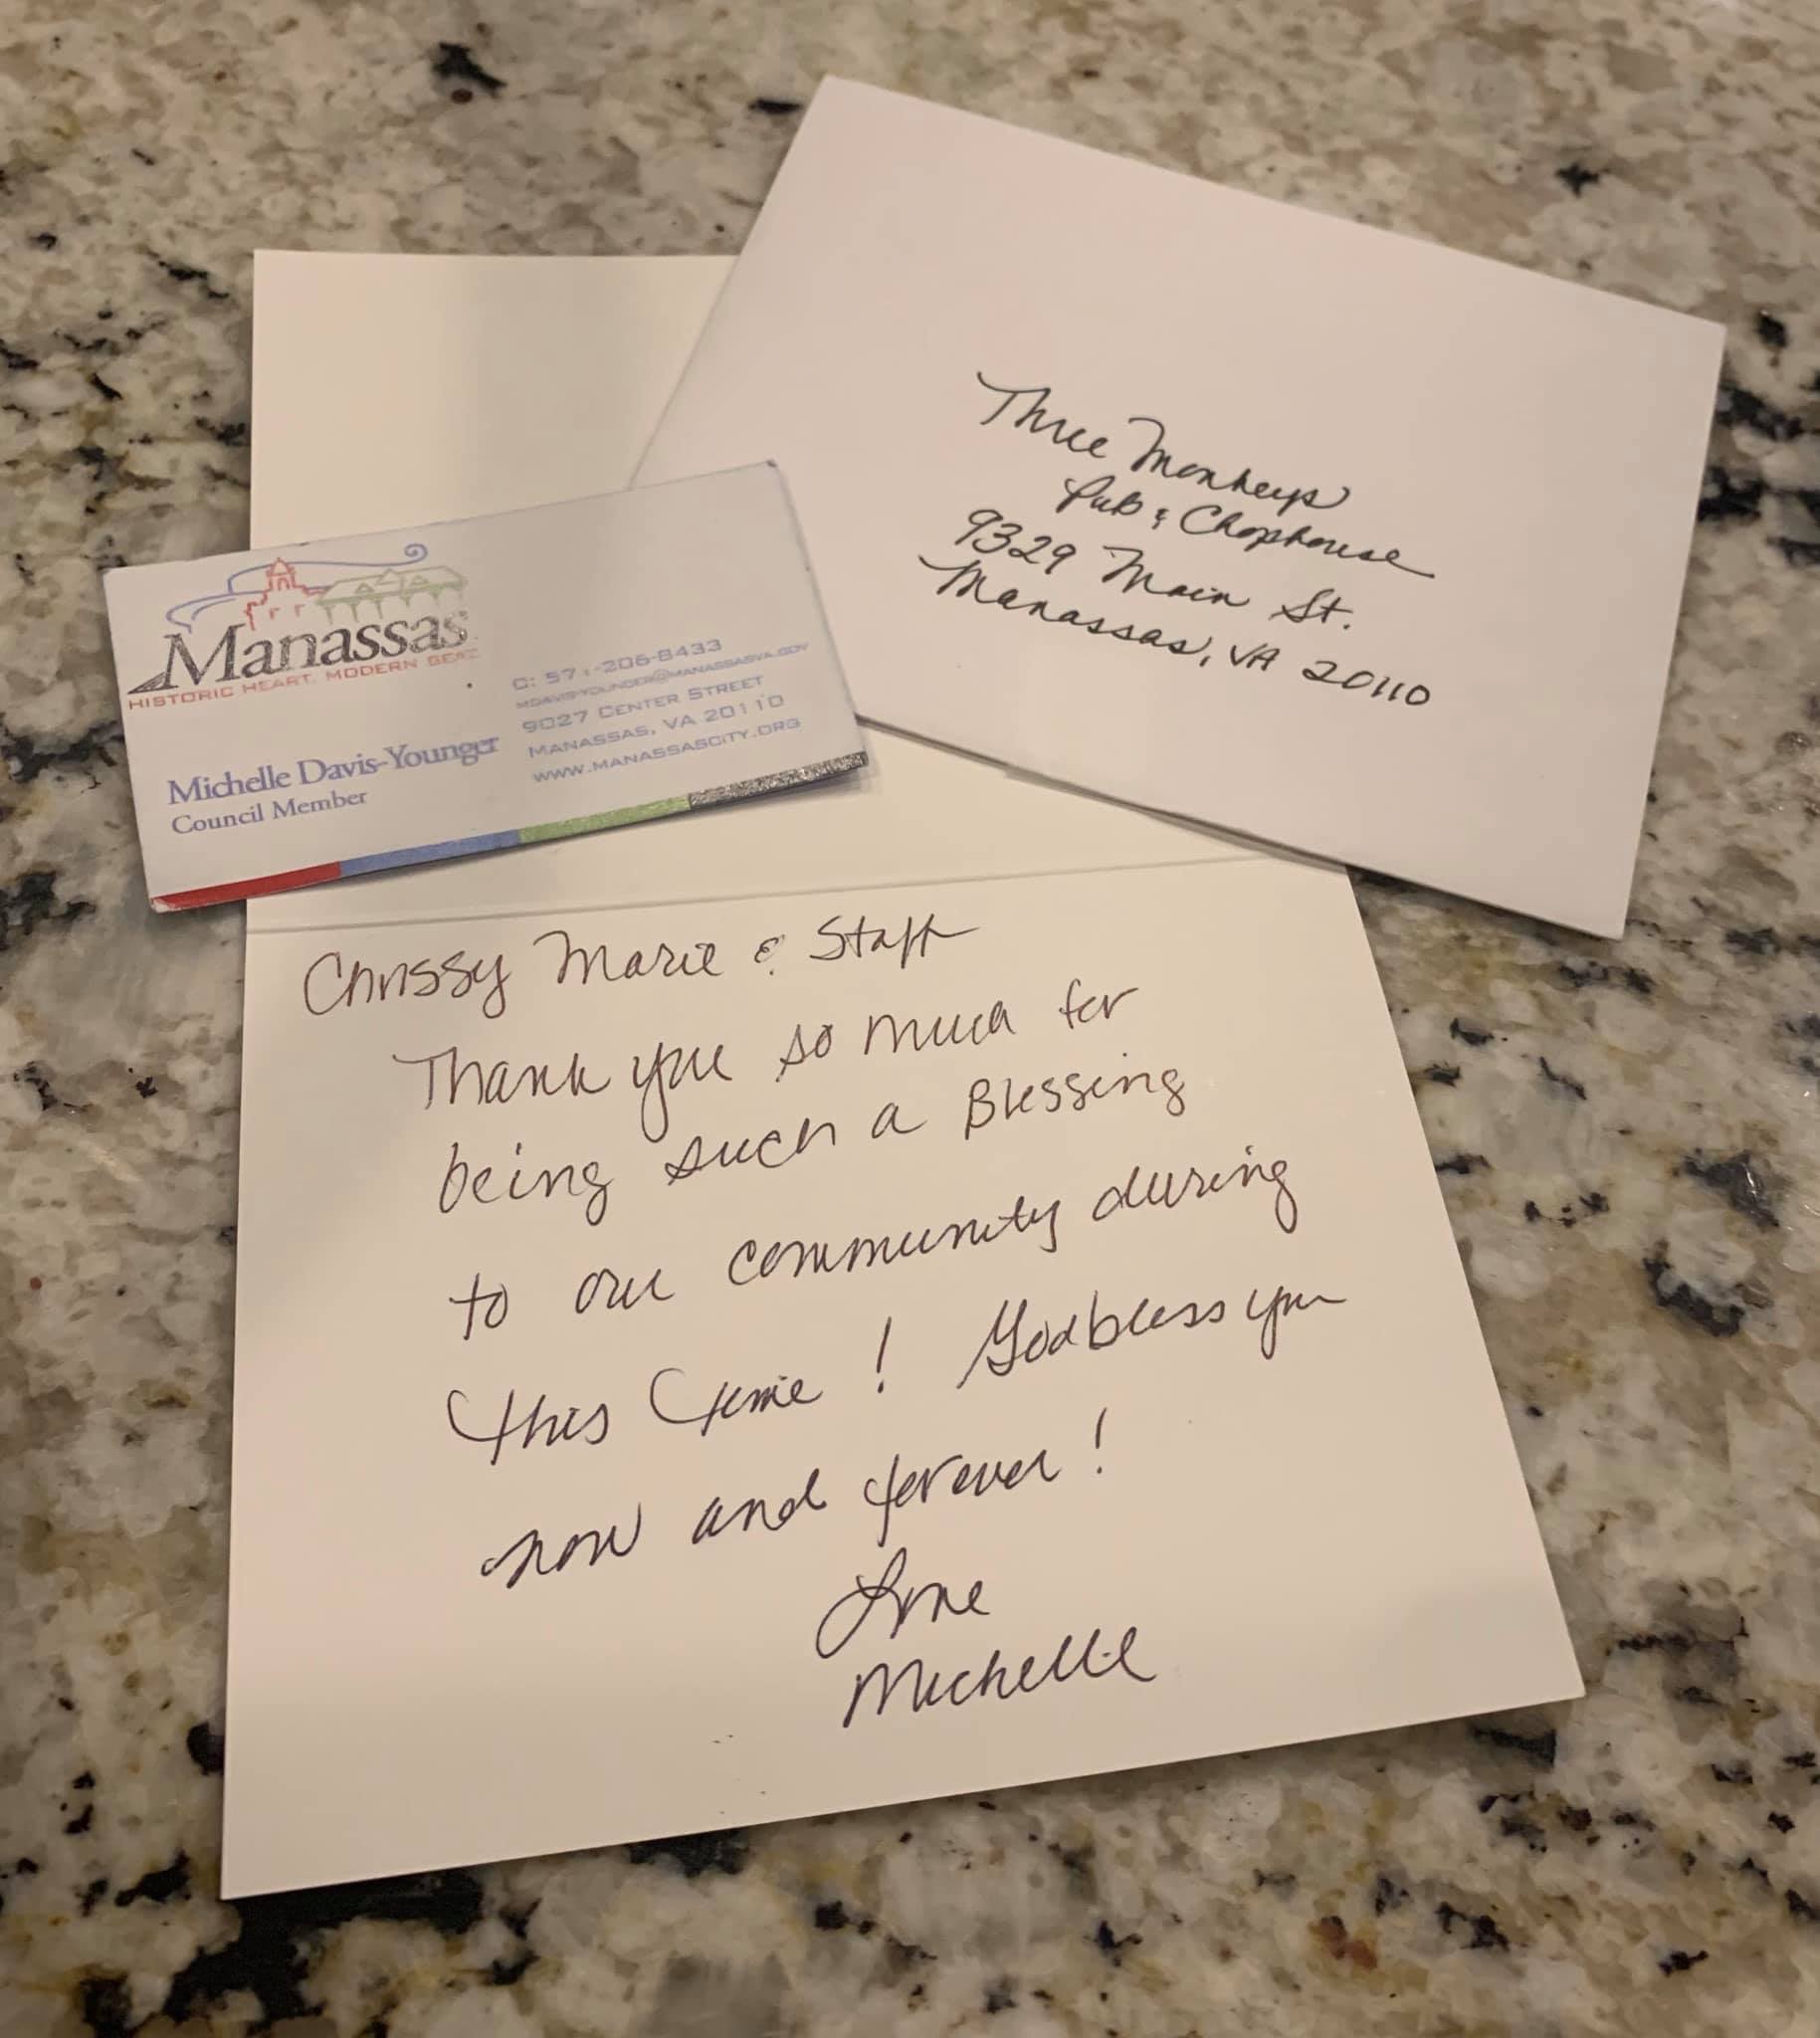 Three Monkeys
Pub & Chophouse
9329 Main St.
Manassas, VA 20110
Manassas
HISTORIC HEART. MODERN BEAT.
Michelle Davis-Younger
Council Member
C: 571-206-8433
MDAVISYOUNGER@MANASSASVA.GOV
9027 CENTER STREET
MANASSAS, VA 20110
WWW.MANASSASCITY.ORG
Chrissy Marie & Staff
Thank you so much for
being such a Blessing
to our community during
this time! God bless you
now and forever!
Love
Michelle